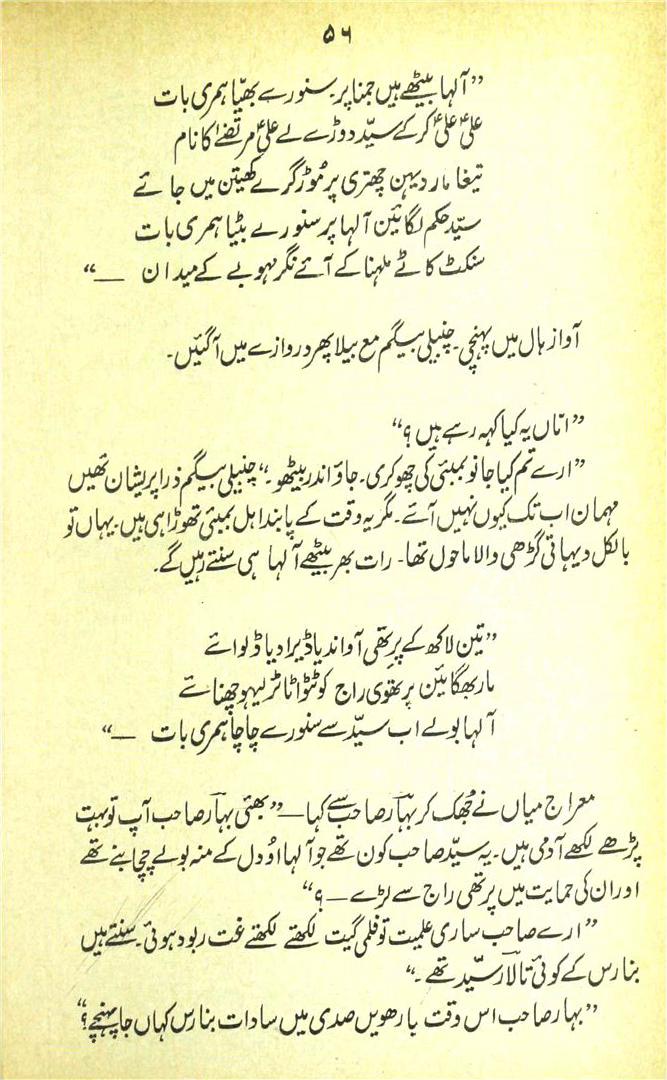 ۵۶
”آلہا بیٹھے ہیں جمنا پر سنورے بھیّا ہمری بات
علیؑ علیؑ کر کے سیّد دوڑے لے علیؑ مرتضےٰ کا نام
تیغا مار دیہن چھتری پر مُوڑ گرے کھیتن میں جائے
سیّد حکم لگائین آلہا پر سنورے بٹیا ہمری بات
سنکٹ کاٹے ملہنا کے آئے نگر مہوبے کے میدان —“
آواز ہال میں پہنچی۔ چنبیلی بیگم مع بیلا پھر دروازے میں آگئیں۔
”امّاں یہ کیا کہہ رہے ہیں؟“
”ارے تم کیا جانو بمبئی کی چھوکری۔ جاؤ اندر بیٹھو۔“ چنبیلی بیگم ذرا پریشان تھیں
مہمان اب تک کیوں نہیں آئے۔ مگر یہ وقت کے پابند اہل بمبئی تھوڑا ہی ہیں۔ یہاں تو
بالکل دیہاتی گڑھی والا ماحول تھا۔ رات بھر بیٹھے آلہا ہی سنتے رہیں گے۔
”تین لاکھ کے پرتھی آوا ندیا ڈیرا دیا ڈلوائے
مار بھگائین پرتھوی راج کو ٹٹوا ٹائر لیہو چھنائے
آلہا بولے اب سیّد سے سنورے چاچا ہمری بات —“
معراج میاں نے جُھک کر بہارؔ صاحب سے کہا — ”بھئی بہارؔ صاحب آپ تو بہت
پڑھے لکھے آدمی ہیں۔ یہ سیّد صاحب کون تھے جو آلہا اُودل کے منہ بولے چچا بنے تھے
اور ان کی حمایت میں پرتھی راج سے لڑے —؟“
”ارے صاحب ساری علمیت تو فلمی گیت لکھتے لکھتے غت ربود ہوئی۔ سنتے ہیں
بنارس کے کوئی تالار سیّد تھے۔“
”بہار صاحب اس وقت بارھویں صدی میں سادات بنارس کہاں جا پہنچے؟“